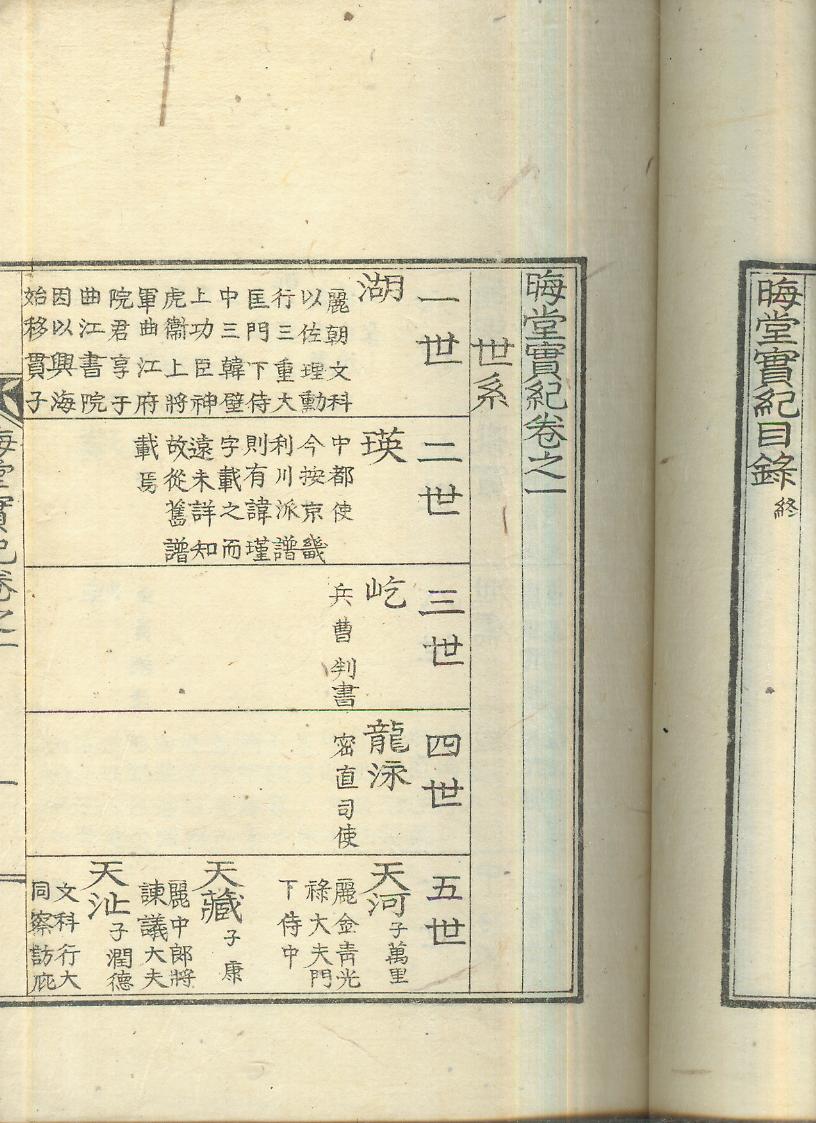 晦堂實紀目錄 終
晦堂實紀卷之一
世系
一世
湖
麗朝文科
以佐理勳
行三重大
匡門下侍
中三韓壁
上功臣神
虎衛上將
軍曲江府
院君享于
曲江書院
因以興海
始移貫子
二世
瑛
中都使
今按京畿
利川派譜
則有諱瑾
字載之而
遠未詳知
故從舊譜
載焉
三世
屹
兵曹判書
四世
龍泳
密直司使
五世
天河 子萬里
麗金青光
祿大夫門
下侍中
天藏 子康
麗中郎將
諫議大夫
天沚 子潤德
文科行大
同察訪庇
晦堂實紀卷之一
一